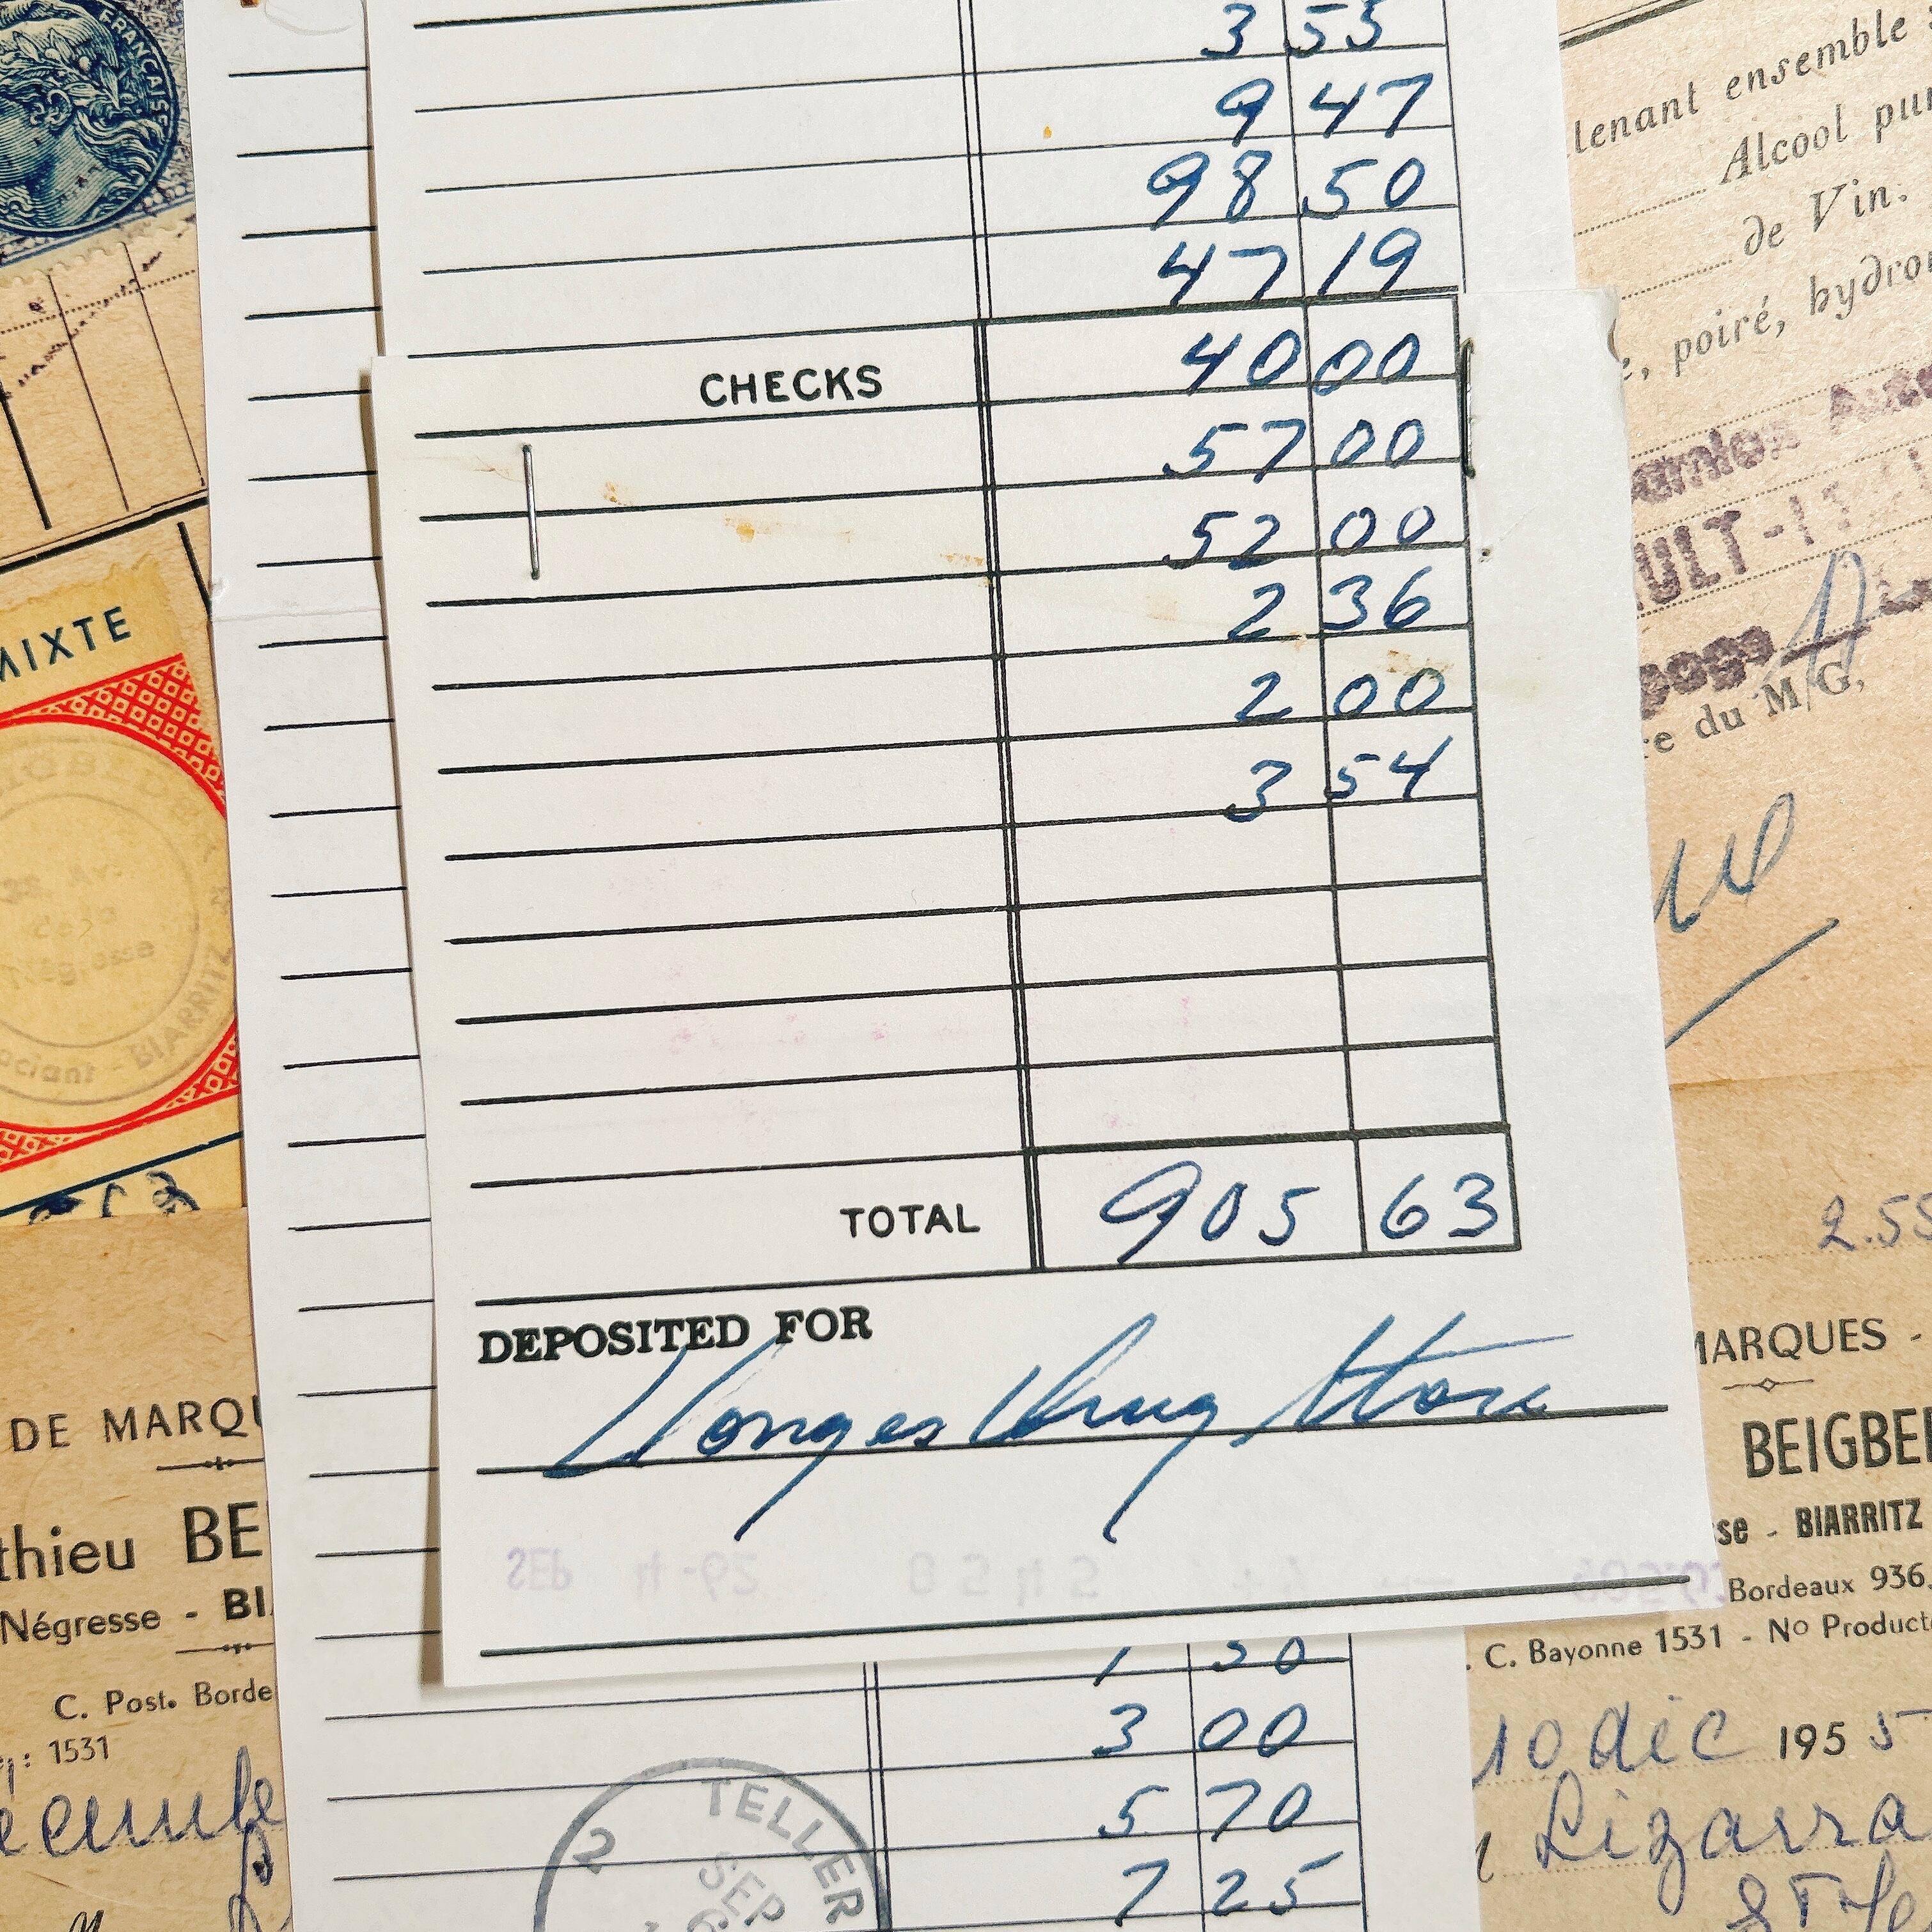 FRANÇAISE
MIXTE
BIARRITZ
3 55
9 47
98 50
47 19
CHECKS 40 00
57 00
52 00
2 36
2 00
3 54
TOTAL 905 63
DEPOSITED FOR
Yonges Drug Store
SEP
1 50
3 00
5 70
7 25
2 TELLER
SEP
ensemble
Alcool pur
de Vin.
poiré, hydro
du M/G,
2.55
DE MARQU
thieu BE
Négresse - BI
C. Post. Borde
: 1531
MARQUES -
BEIGBE
se - BIARRITZ
Bordeaux 936,
. C. Bayonne 1531 - No Product
10 dic 1955
Lizarra